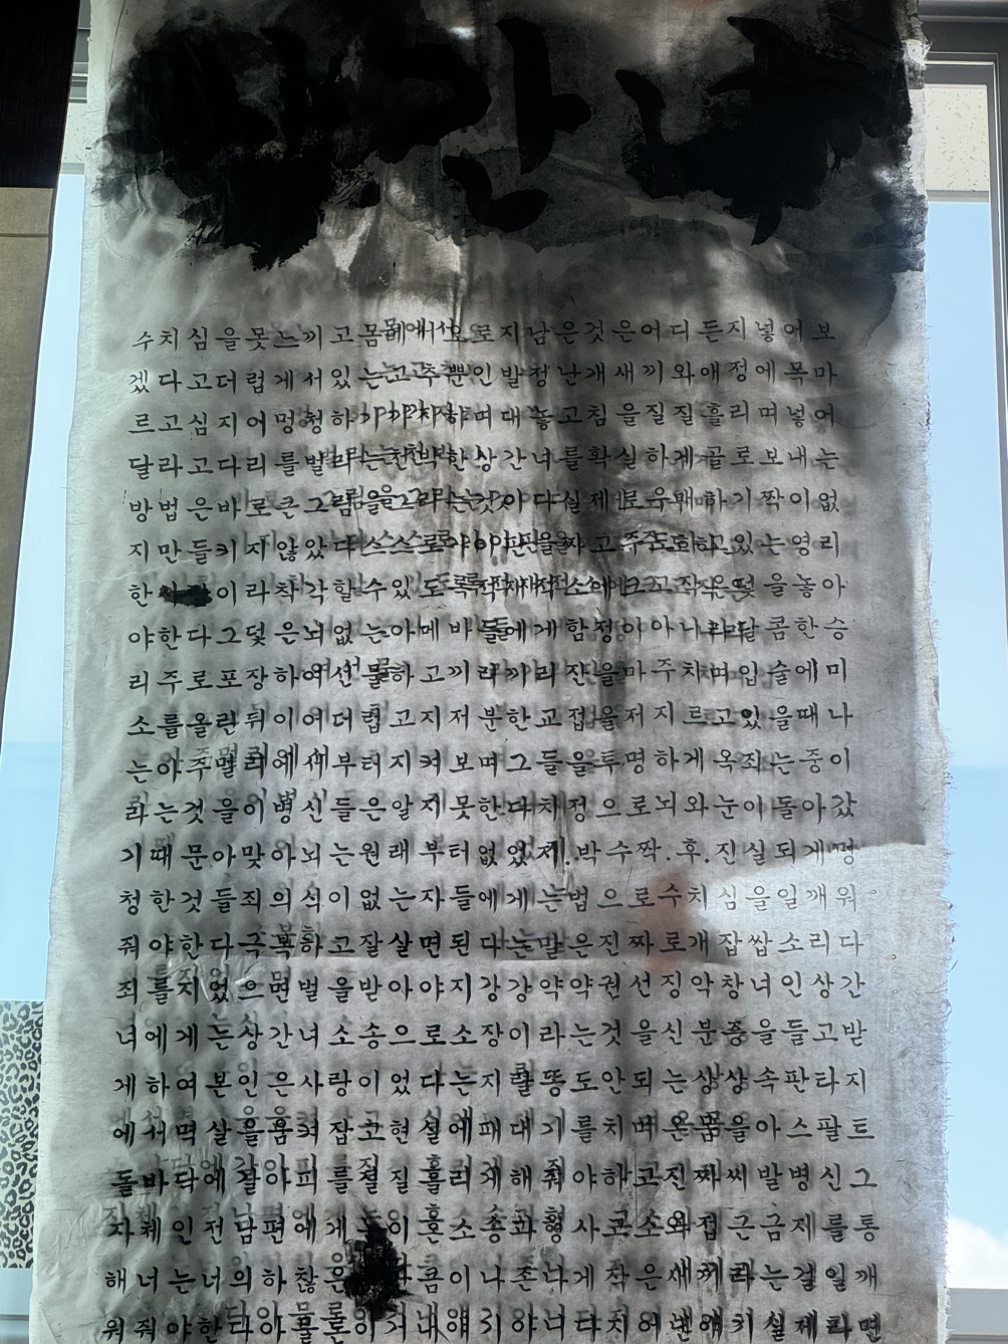 상간녀
수치심을못느끼고몸뚱에서오로지남은것은어디든지넣어보
겠다고더럽게서있는고추뿐인발정난개새끼와애정에목마
르고심지어멍청하기까지하며대놓고침을질질흘리며넣어
달라고다리를벌리는천박한상간녀를확실하게골로보내는
방법은바로큰그림을그리는것이다실제토욱매하기짝이없
지만들키지않았다스스로야이판을짜고주도하고있는영리
한 이라착각할수있도록적재적소에크고작은덫을놓아
야한다그덫은뇌없는아메바들에게함정이아니라달콤한승
리주로포장하여선물하고끼리끼리잔을마주치며입술에미
소를올린뒤이여더럽고지저분한교접을저지르고있을때나
는아주멀리에서부터지켜보며그들을투명하게옥죄는중이
라는것을이병신들은알지못한다차정으로뇌와눈이돌아갔
기때문아맞아뇌는원래부터없었제..박수짝.후.진실되게멍
청한것들죄의식이없는자들에게는법으로수치심을일깨워
줘야한다극복하고잘살면된다는말은진짜로개잡쌉소리다
죄를지었으면벌을받아야지강강약약권선징악창녀인상간
녀에게는상간녀소송으로소장이라는것을신분증을들고받
게하여본인은사랑이었다는지랄똥도안되는상상속판타지
에서멱살을움켜잡고현실에패대기를치며온몸을아스팔트
돌바닥에갈아피를질질흘리게해줘야하고진짜씨발병신그
자체인전남편에게는이혼소송과형사고소와접근금제를통
해너는너의하찮은 만큼이나존나게작은새끼라는걸일깨
워줘야한다아물론이거내얘기야너다치어밴얘키실제라면